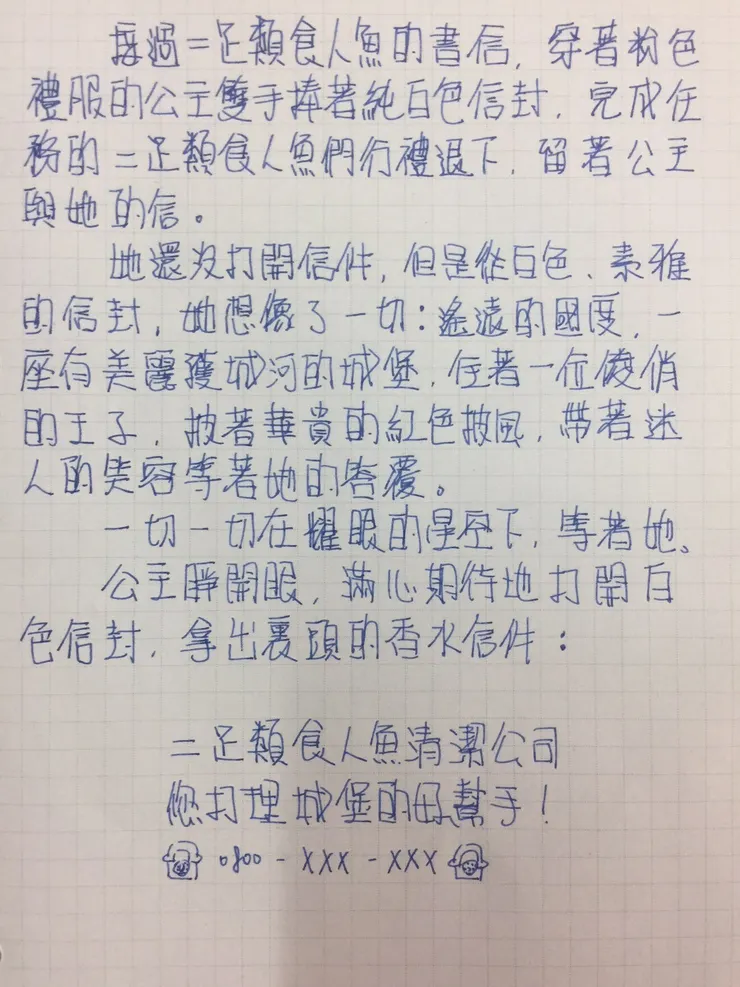 接過二足類食人魚的書信，穿著粉色
禮服的公主雙手捧著純白色信封．完成任
務的二足類食人魚們行禮退下．留著公主
與她的信。
她還沒打開信件，但是從白色、素雅
的信封，她想像了一切：遙遠的國度，一
座有美麗護城河的城堡．住著一位俊俏
的王子．披著華貴的紅色披風．帶著迷
人的笑容等著她的答覆。
一切一切在耀眼的星空下．等著她。
公主睜開眼，滿心期待地打開白
色信封．拿出裏頭的香水信件：
二足類食人魚清潔公司
您打理城堡的好幫手！
0800-XXX-XXX